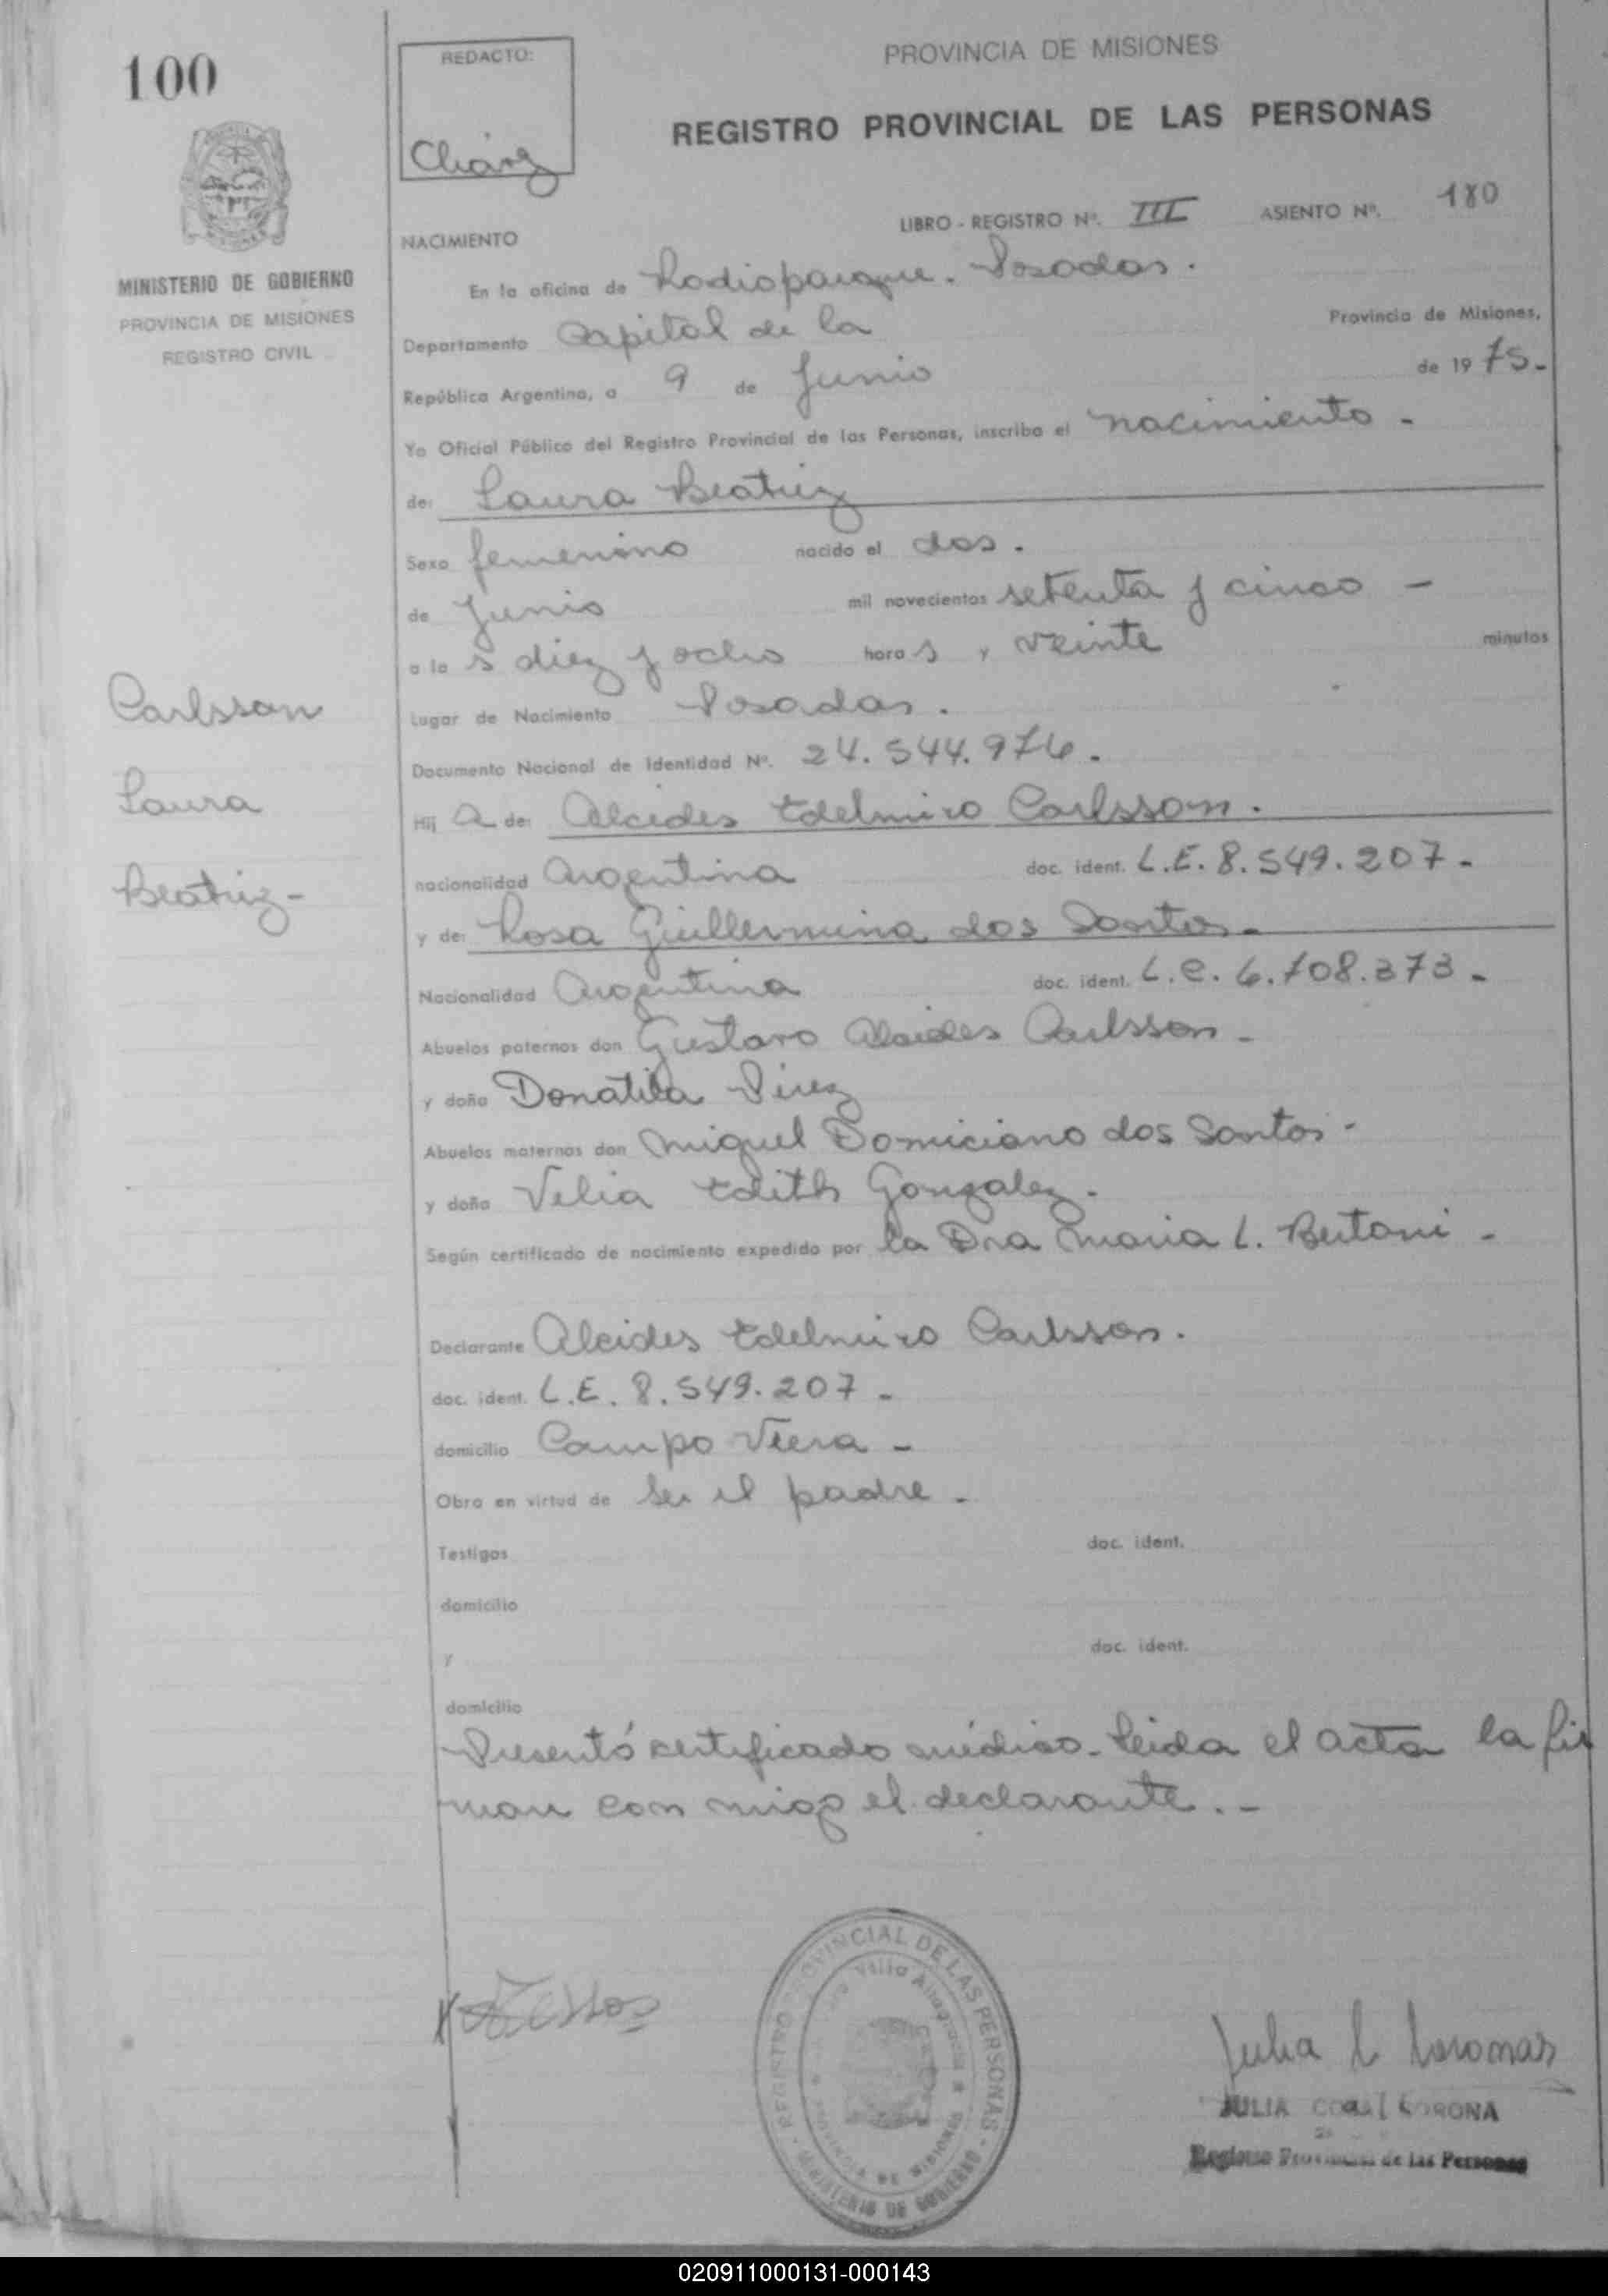 100
REDACTO:
PROVINCIA DE MISIONES
REGISTRO PROVINCIAL DE LAS PERSONAS
LIBRO - REGISTRO Nº. III ASIENTO Nº. 180
MINISTERIO DE GOBIERNO
PROVINCIA DE MISIONES
REGISTRO CIVIL
NACIMIENTO
En la oficina de Posadas.
Departamento Capital de la Provincia de Misiones,
República Argentina, a 9 de Junio de 1975.-
Yo Oficial Público del Registro Provincial de las Personas, inscribo el nacimiento -
de: Laura Beatriz
Sexo femenino nacido el dos.
de Junio mil novecientos setenta y cinco -
a las diez y ocho horas y veinte minutos
Carlsson
Laura
Beatriz-
Lugar de Nacimiento Posadas.
Documento Nacional de Identidad Nº. 24.544.976.
Hija de: Alcides Edelmiro Carlsson.
nacionalidad Argentina doc. ident. L.E. 8.549.207-
y de: Rosa Guillermina dos Santos-
Nacionalidad Argentina doc. ident. L.C. 6.708.373-
Abuelos paternos don Gustavo Alcides Carlsson-
y doña Donatila
Abuelos maternos don Miguel Domiciano dos Santos-
y doña Velia Edith Gonzalez.
Según certificado de nacimiento expedido por la Dra Maria L. Bertoni -
Declarante Alcides Edelmiro Carlsson.
doc. ident. L.E. 8.549.207-
domicilio Campo Viera -
Obra en virtud de ser el padre-
Testigos doc. ident.
domicilio
y doc. ident.
domicilio
Presentó certificado médico. Leida el acta la fir
man con migo el declarante.-
REGISTRO PROVINCIAL DE LAS PERSONAS
MINISTERIO DE GOBIERNO
PROVINCIA DE MISIONES
JULIA CORONA
Registro Provincial de las Personas
020911000131-000143